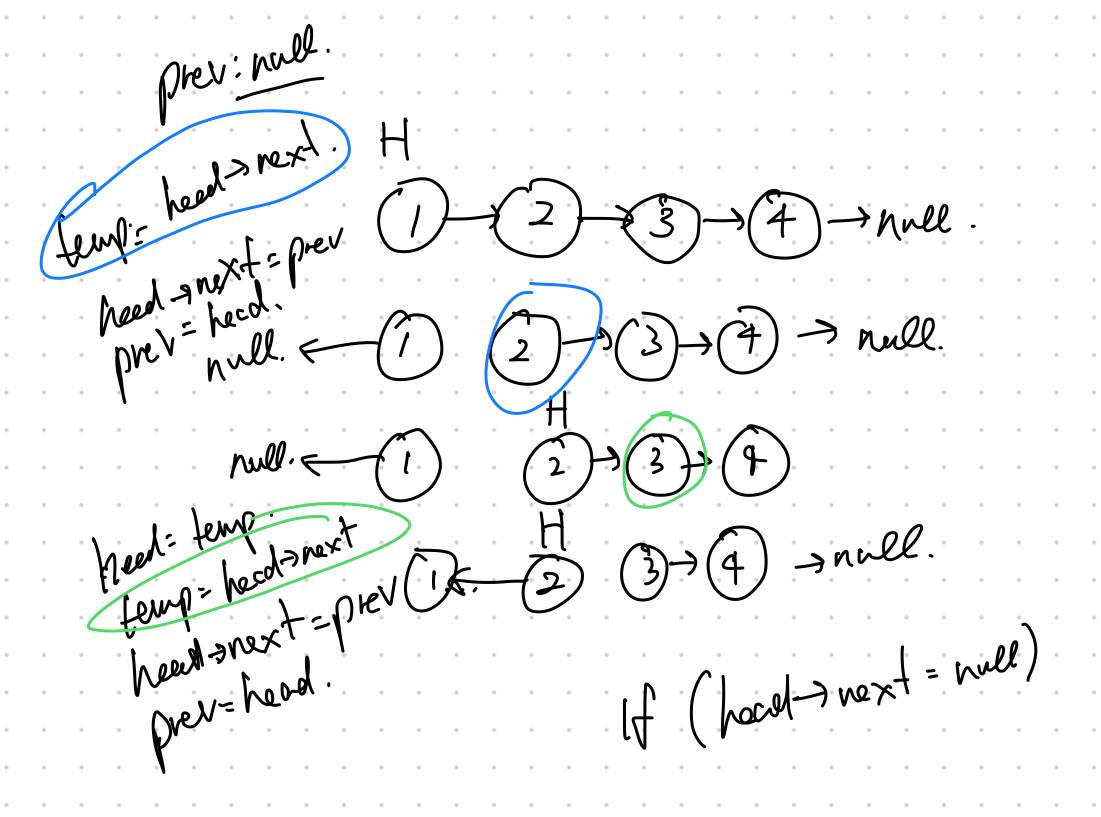 prev: null.
temp = head→next.
head→next = prev
prev = head.
H
1 → 2 → 3 → 4 → null.
null. ← 1 2 → 3 → 4 → null.
H
null. ← 1 2 → 3 → 4
H
1 ← 2 3 → 4 → null.
head = temp.
temp = head→next
head→next = prev
prev = head.
If (head→next = null)